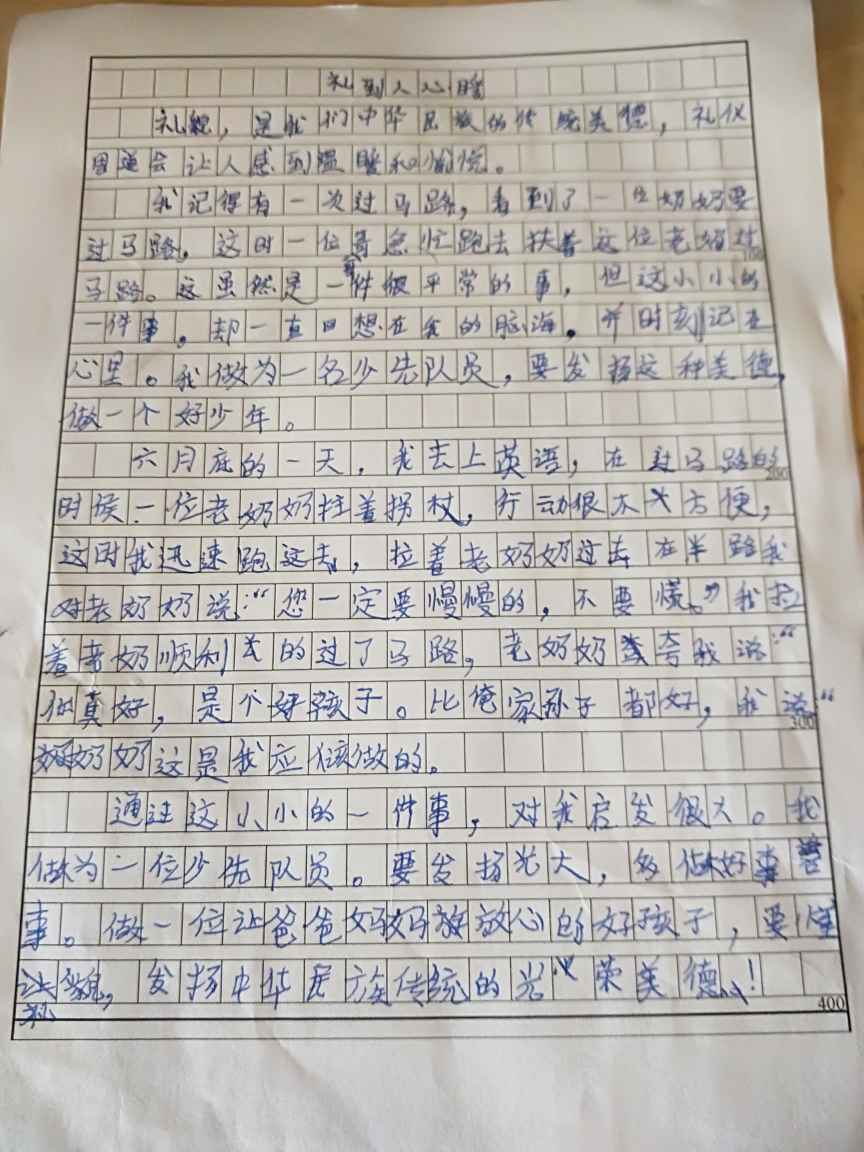 礼到人心暖
礼貌，是我们中华民族的传统美德，礼仪
周道会让人感到温暖和愉悦。
我记得有一次过马路，看到了一位奶奶要
过马路。这时一位哥急忙跑去扶着这位老奶过
100
马路。这虽然是一件很平常的事，但这小小的
一件事。却一直回想在我的脑海。并时刻记在
心里。我做为一名少先队员，要发扬这种美德，
做一个好少年。
六月底的一天，我去上英语，在过马路的
200
时侯一位老奶奶拄着拐杖，行动很不大方便，
这时我迅速跑过去，拉着老奶奶过去在半路我
对老奶奶说：“您一定要慢慢的，不要慌。”我拉
着老奶顺利的过了马路，老奶奶夸我说：“
你真好，是个好孩子。比俺家孙子都好，我说“
300
奶奶这是我应该做的。
通过这小小的一件事，对我启发很大。我
做为一位少先队员。要发扬光大，多做好事善
事。做一位让爸爸妈妈放心的好孩子，要懂
礼貌，发扬中华民族传统的光荣美德！
400